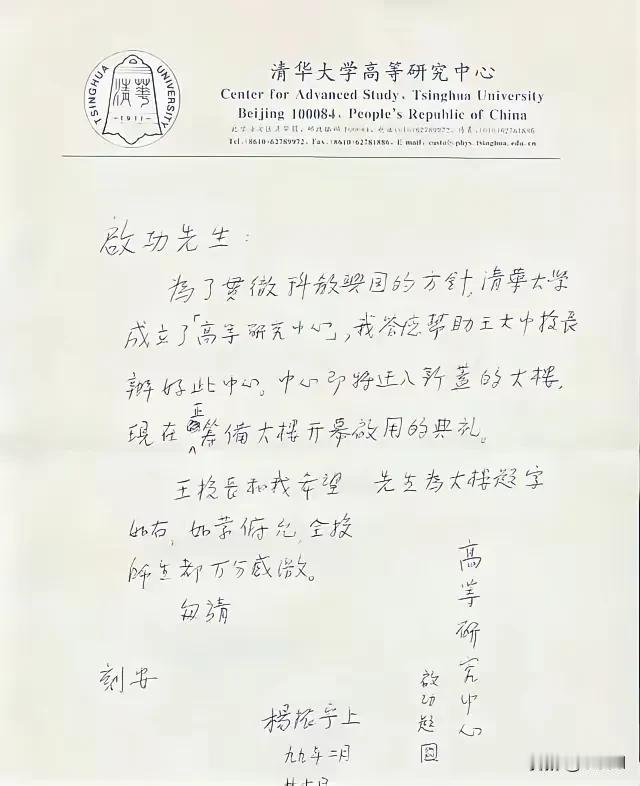 TSINGHUA UNIVERSITY
清華
-1911-
清华大学高等研究中心
Center for Advanced Study, Tsinghua University
Beijing 100084, People's Republic of China
Tel.(8610)62789972, Fax.(8610)62781886, E-mail: castu@phys.tsinghua.edu.cn
啟功先生：
為了貫徹科教興国的方針,清華大学
成立了「高等研究中心」,我答应幫助王大中校長
辦好此中心。中心即将迁入新蓋的大樓,
現在正籌備大樓开幕啟用的典礼。
王校長和我希望 先生為大樓題字
如右,如蒙俯允,全校
师生都万分感激。
匆請
刻安
楊振宁上
九九年二月
廿七日
高等研究中心
啟功題